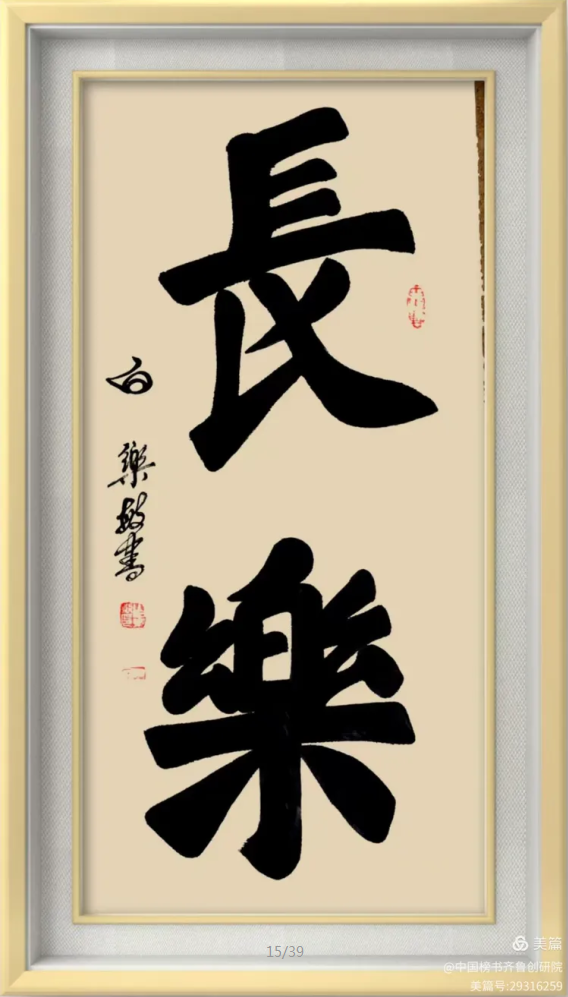 長樂
樂敏書
15/39
美篇
@中国榜书齐鲁创研院
美篇号:29316259